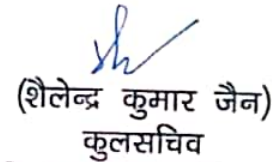 (शैलेन्द्र कुमार जैन)
कुलसचिव